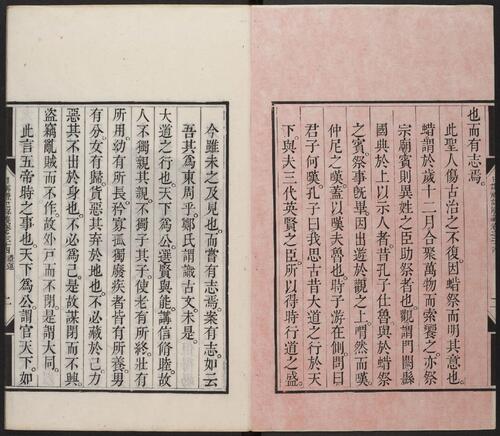 也而有志焉。
此聖人傷古治之不復。因蜡祭而明其意也。
蜡謂於歲十二月合聚萬物而索饗之。亦祭
宗廟賓則異姓之臣助祭者也。觀謂門闕縣
國典於上以示人者。昔孔子仕魯與於蜡祭
之賓。祭事既畢。因出遊於觀之上。喟然而嘆。
仲尼之嘆。蓋以嘆夫魯也。時子游在側。問曰
君子何嘆。孔子曰我思古昔大道之行於天
下。與夫三代英賢之臣。所以得時行道之盛。
今雖未之及見也。而嘗有志焉。案有志如云
吾其為東周乎。鄭氏謂識古文未是。
大道之行也。天下為公。選賢與能。講信脩睦。故
人不獨親其親。不獨子其子。使老有所終。壯有
所用。幼有所長。矜寡孤獨廢疾者皆有所養。男
有分。女有歸。貨惡其弃於地也。不必藏於己。力
惡其不出於身也。不必為己。是故謀閉而不興。
盜竊亂賊而不作。故外戶而不閉。是謂大同。
此言五帝時之事也。天下為公。謂官天下。如